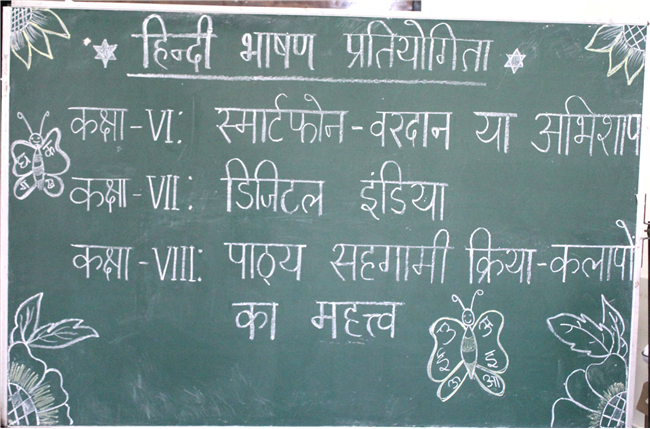 हिन्दी भाषण प्रतियोगिता
कक्षा-VI: स्मार्टफोन-वरदान या अभिशाप
कक्षा-VII: डिजिटल इंडिया
कक्षा-VIII: पाठ्य सहगामी क्रिया-कलापों
का महत्त्व